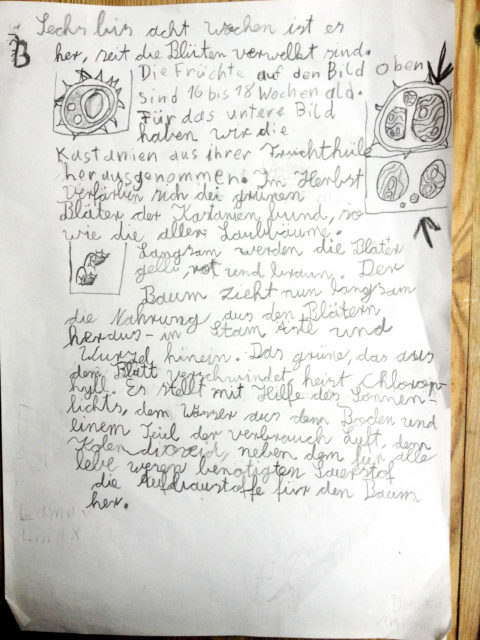 Sechs bis acht Wochen ist es
B
her, seit die Blüten verwelkt sind.
Die Früchte auf den Bild oben
sind 16 bis 18 Wochen ald.
Für das untere Bild
haben wir die
Kastanien aus ihrer Fruchthülle
herausgenommen. Im Herbst
verfärben sich dei grünen
Bläter der Kastanien bund, so
wie die aller Laubbäume.
Langsam werden die Bläter
gelb, rot und braun. Der
Baum zieht nun langsam
die Nahrung aus den Blättern
heraus - in Stam Äste und
Wurzel hinein. Das grüne, das aus
dem Blatt verschwindet heist Chlorop-
hyll. Es stellt mit Hilfe des Sonnen-
lichts, dem Wasser aus dem Boden und
einem Teil der verbrauch luft, dem
Kolendioxeid, neben dem für alle
lebe wesen benötigten Sauerstof
die Aufbaustoffe für den Baum
her.